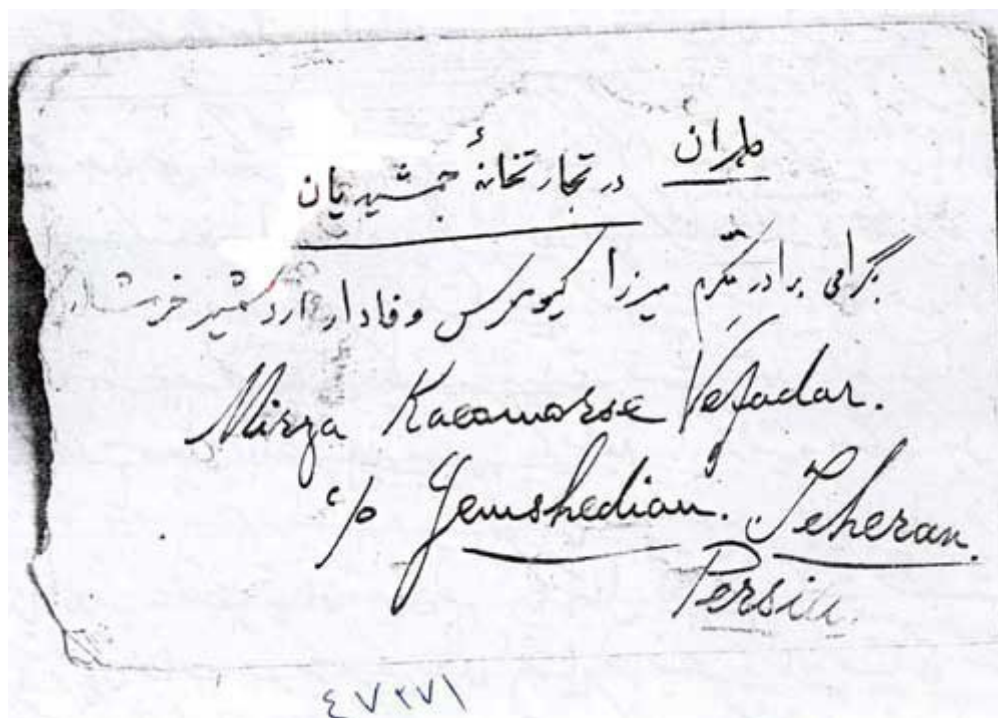 طهران در تجارتخانهٔ جمشیدیان
گرامی برادر مکرّم میرزا کیومرس وفادار اردشیر
Mirza Kaeomorse Vefadar.
c/o Jemshedian. Teheran.
Persia.